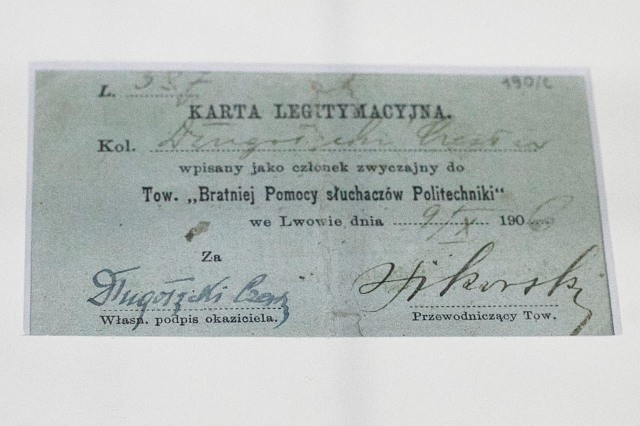 L. 387 190/c
KARTA LEGITYMACYJNA.
Kol. Długołęcki Czesław
wpisany jako członek zwyczajny do
Tow. „Bratniej Pomocy słuchaczów Politechniki"
we Lwowie dnia 9/X 1906
Za
Długołęcki Czesł Sikorski
Własn. podpis okaziciela. Przewodniczący Tow.